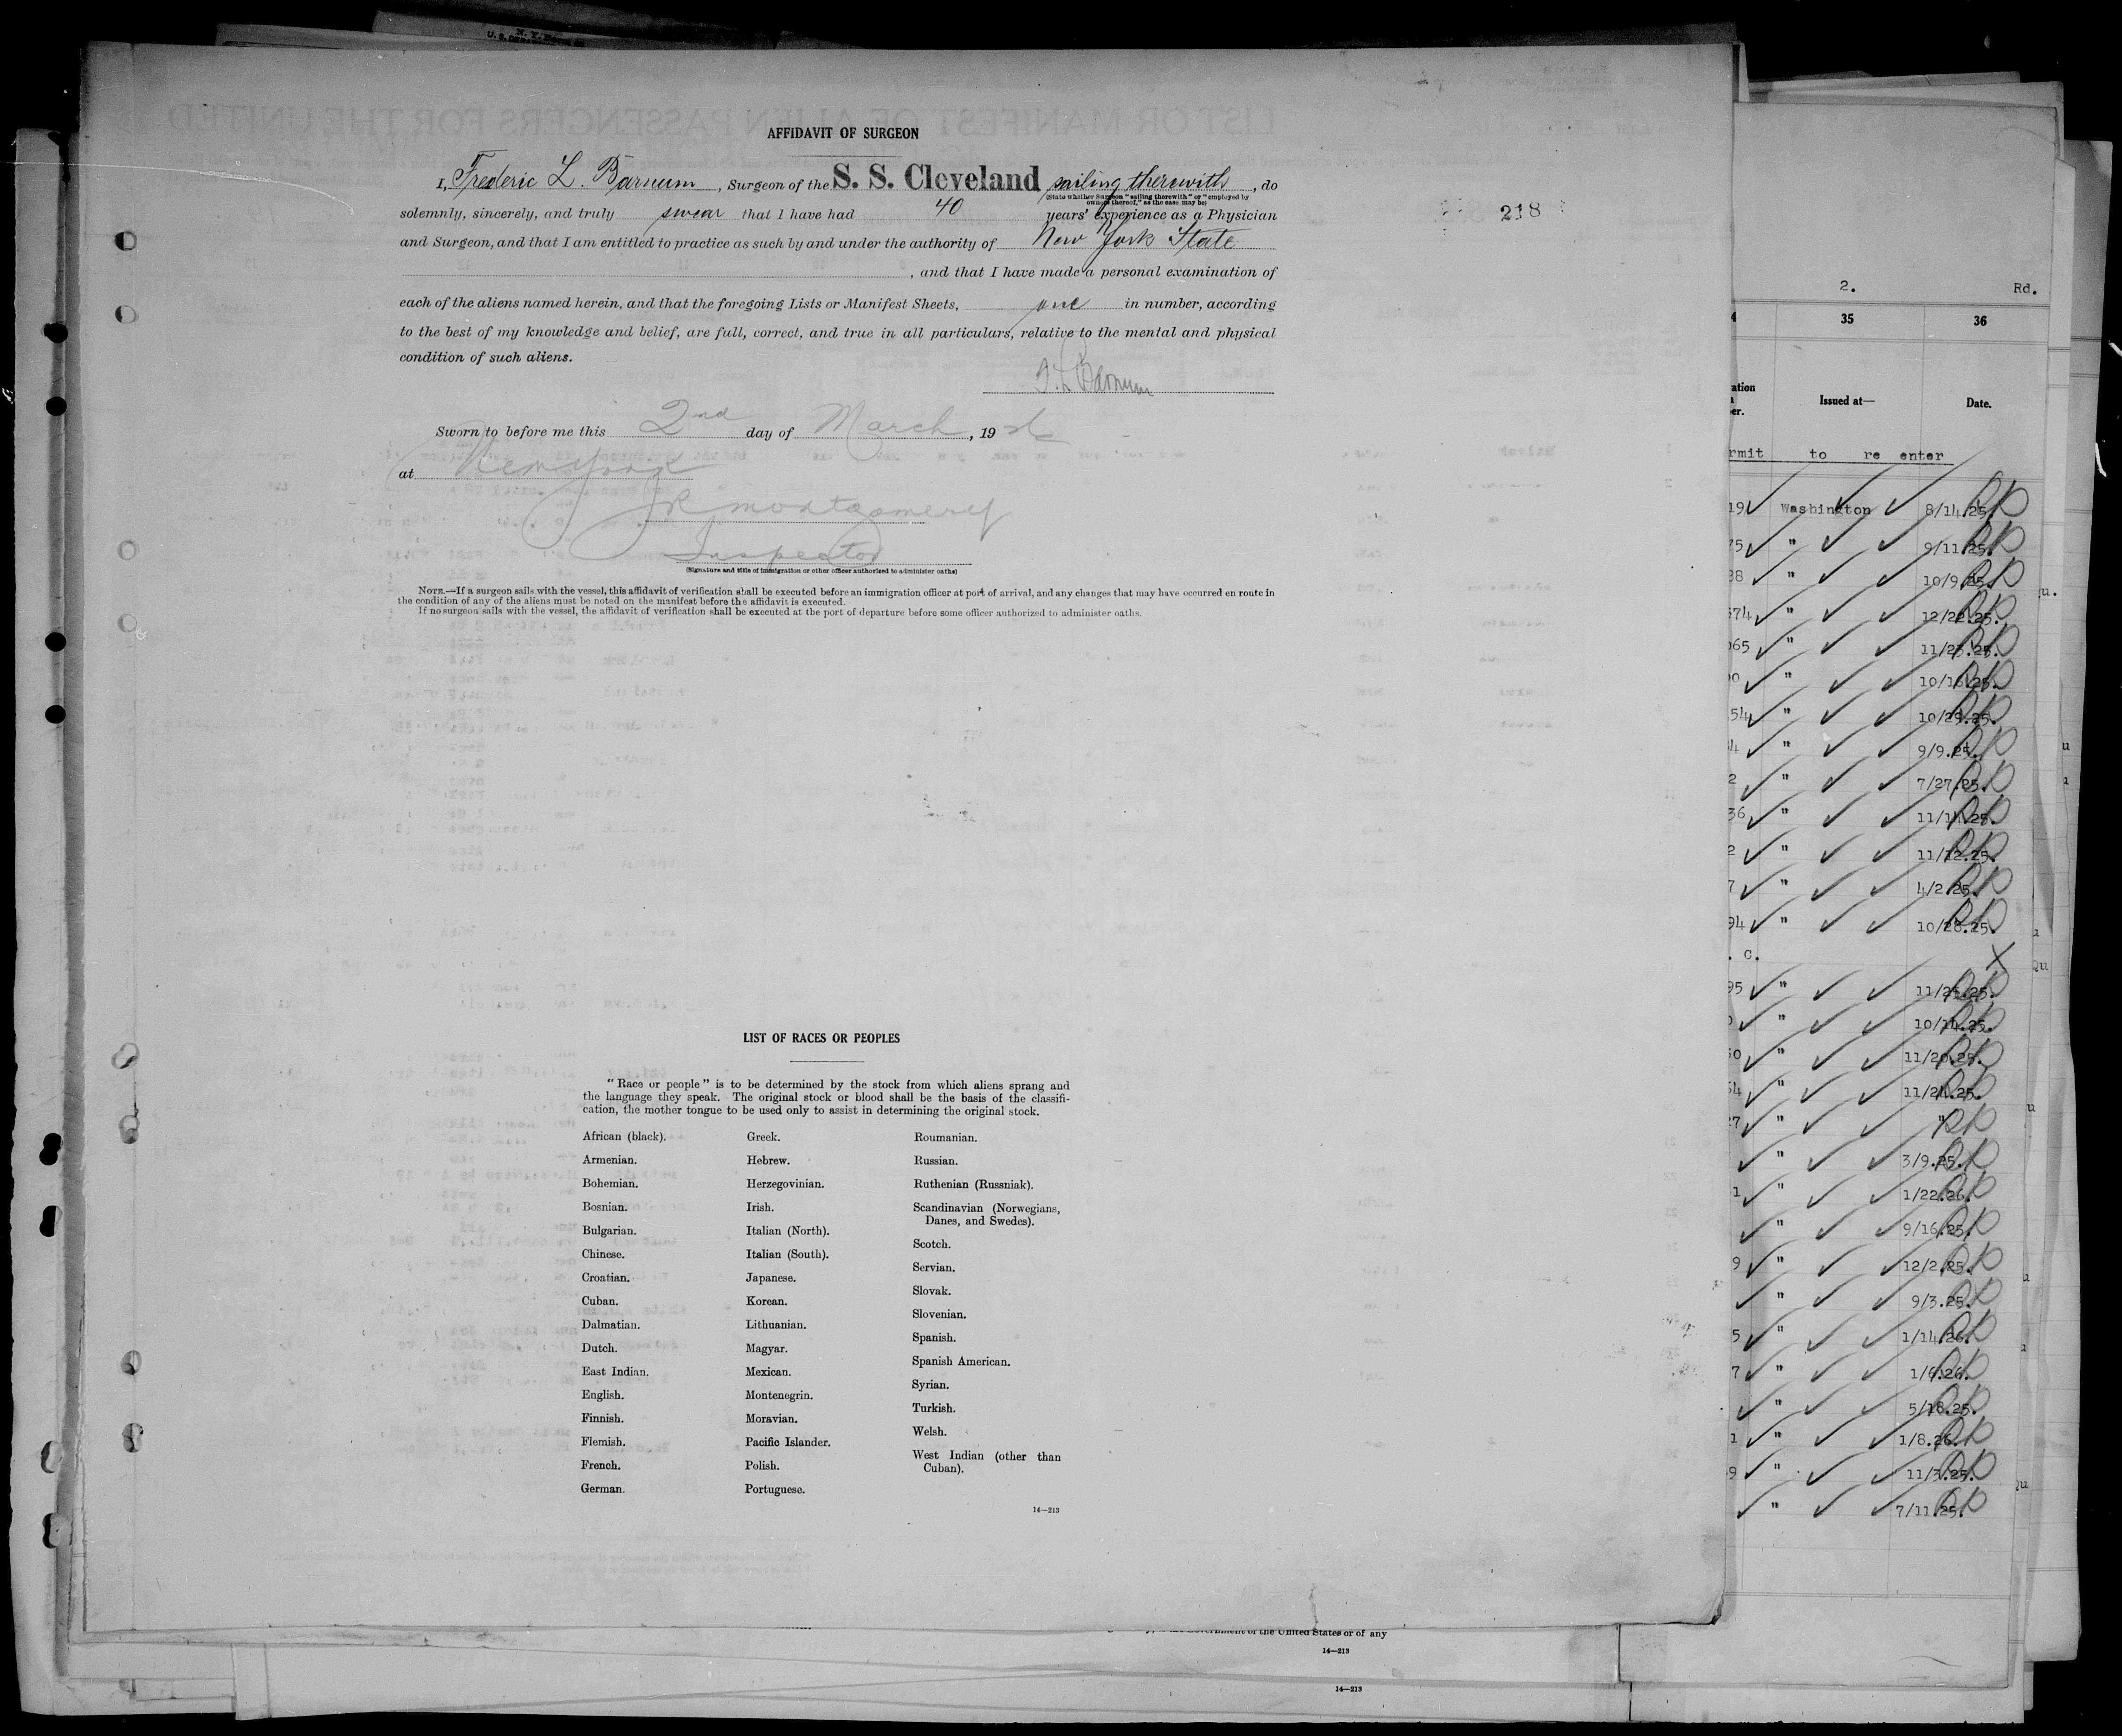 AFFIDAVIT OF SURGEON
I, Frederic L. Barnum, Surgeon of the S. S. Cleveland sailing therewith, do
(State whether Surgeon "sailing therewith" or "employed by
owners thereof," as the case may be)
solemnly, sincerely, and truly swear that I have had 40 years' experience as a Physician
and Surgeon, and that I am entitled to practice as such by and under the authority of New York State
, and that I have made a personal examination of
each of the aliens named herein, and that the foregoing Lists or Manifest Sheets, one in number, according
to the best of my knowledge and belief, are full, correct, and true in all particulars, relative to the mental and physical
condition of such aliens.
F. L. Barnum
Sworn to before me this 2nd day of March, 19 26
at New York
J R Montgomery
Inspector
(Signature and title of immigration or other officer authorized to administer oaths)
NOTE.—If a surgeon sails with the vessel, this affidavit of verification shall be executed before an immigration officer at port of arrival, and any changes that may have occurred en route in
the condition of any of the aliens must be noted on the manifest before the affidavit is executed.
If no surgeon sails with the vessel, the affidavit of verification shall be executed at the port of departure before some officer authorized to administer oaths.
218
LIST OF RACES OR PEOPLES
"Race or people" is to be determined by the stock from which aliens sprang and
the language they speak. The original stock or blood shall be the basis of the classifi-
cation, the mother tongue to be used only to assist in determining the original stock.
African (black).
Armenian.
Bohemian.
Bosnian.
Bulgarian.
Chinese.
Croatian.
Cuban.
Dalmatian.
Dutch.
East Indian.
English.
Finnish.
Flemish.
French.
German.
Greek.
Hebrew.
Herzegovinian.
Irish.
Italian (North).
Italian (South).
Japanese.
Korean.
Lithuanian.
Magyar.
Mexican.
Montenegrin.
Moravian.
Pacific Islander.
Polish.
Portuguese.
Roumanian.
Russian.
Ruthenian (Russniak).
Scandinavian (Norwegians,
Danes, and Swedes).
Scotch.
Servian.
Slovak.
Slovenian.
Spanish.
Spanish American.
Syrian.
Turkish.
Welsh.
West Indian (other than
Cuban).
14—213
2. Rd.
35 36
Issued at— Date.
rmit to re enter
19 Washington 8/14.25.
75 " 9/11.25.
38 " 10/9.25.
574 " 12/22.25.
065 " 11/23.25.
" 10/16.25.
54 " 10/29.25.
" 9/9.25.
2 " 7/27.25.
36 " 11/14.25.
2 " 11/12.25.
7 " 4/2.25.
94 " 10/28.25.
. C.
95 " 11/25.25.
" 10/14.25.
50 " 11/20.25.
" 11/24.25.
27 " "
" 3/9.25.
1 " 1/22.26.
" 9/16.25.
9 " 12/2.25.
" 9/3.25.
5 " 1/14.26.
7 " 1/6.26.
" 5/18.25.
1 " 1/8.26.
9 " 11/3.25.
" 7/11.25.
of the United States or of any
14—213
14—213